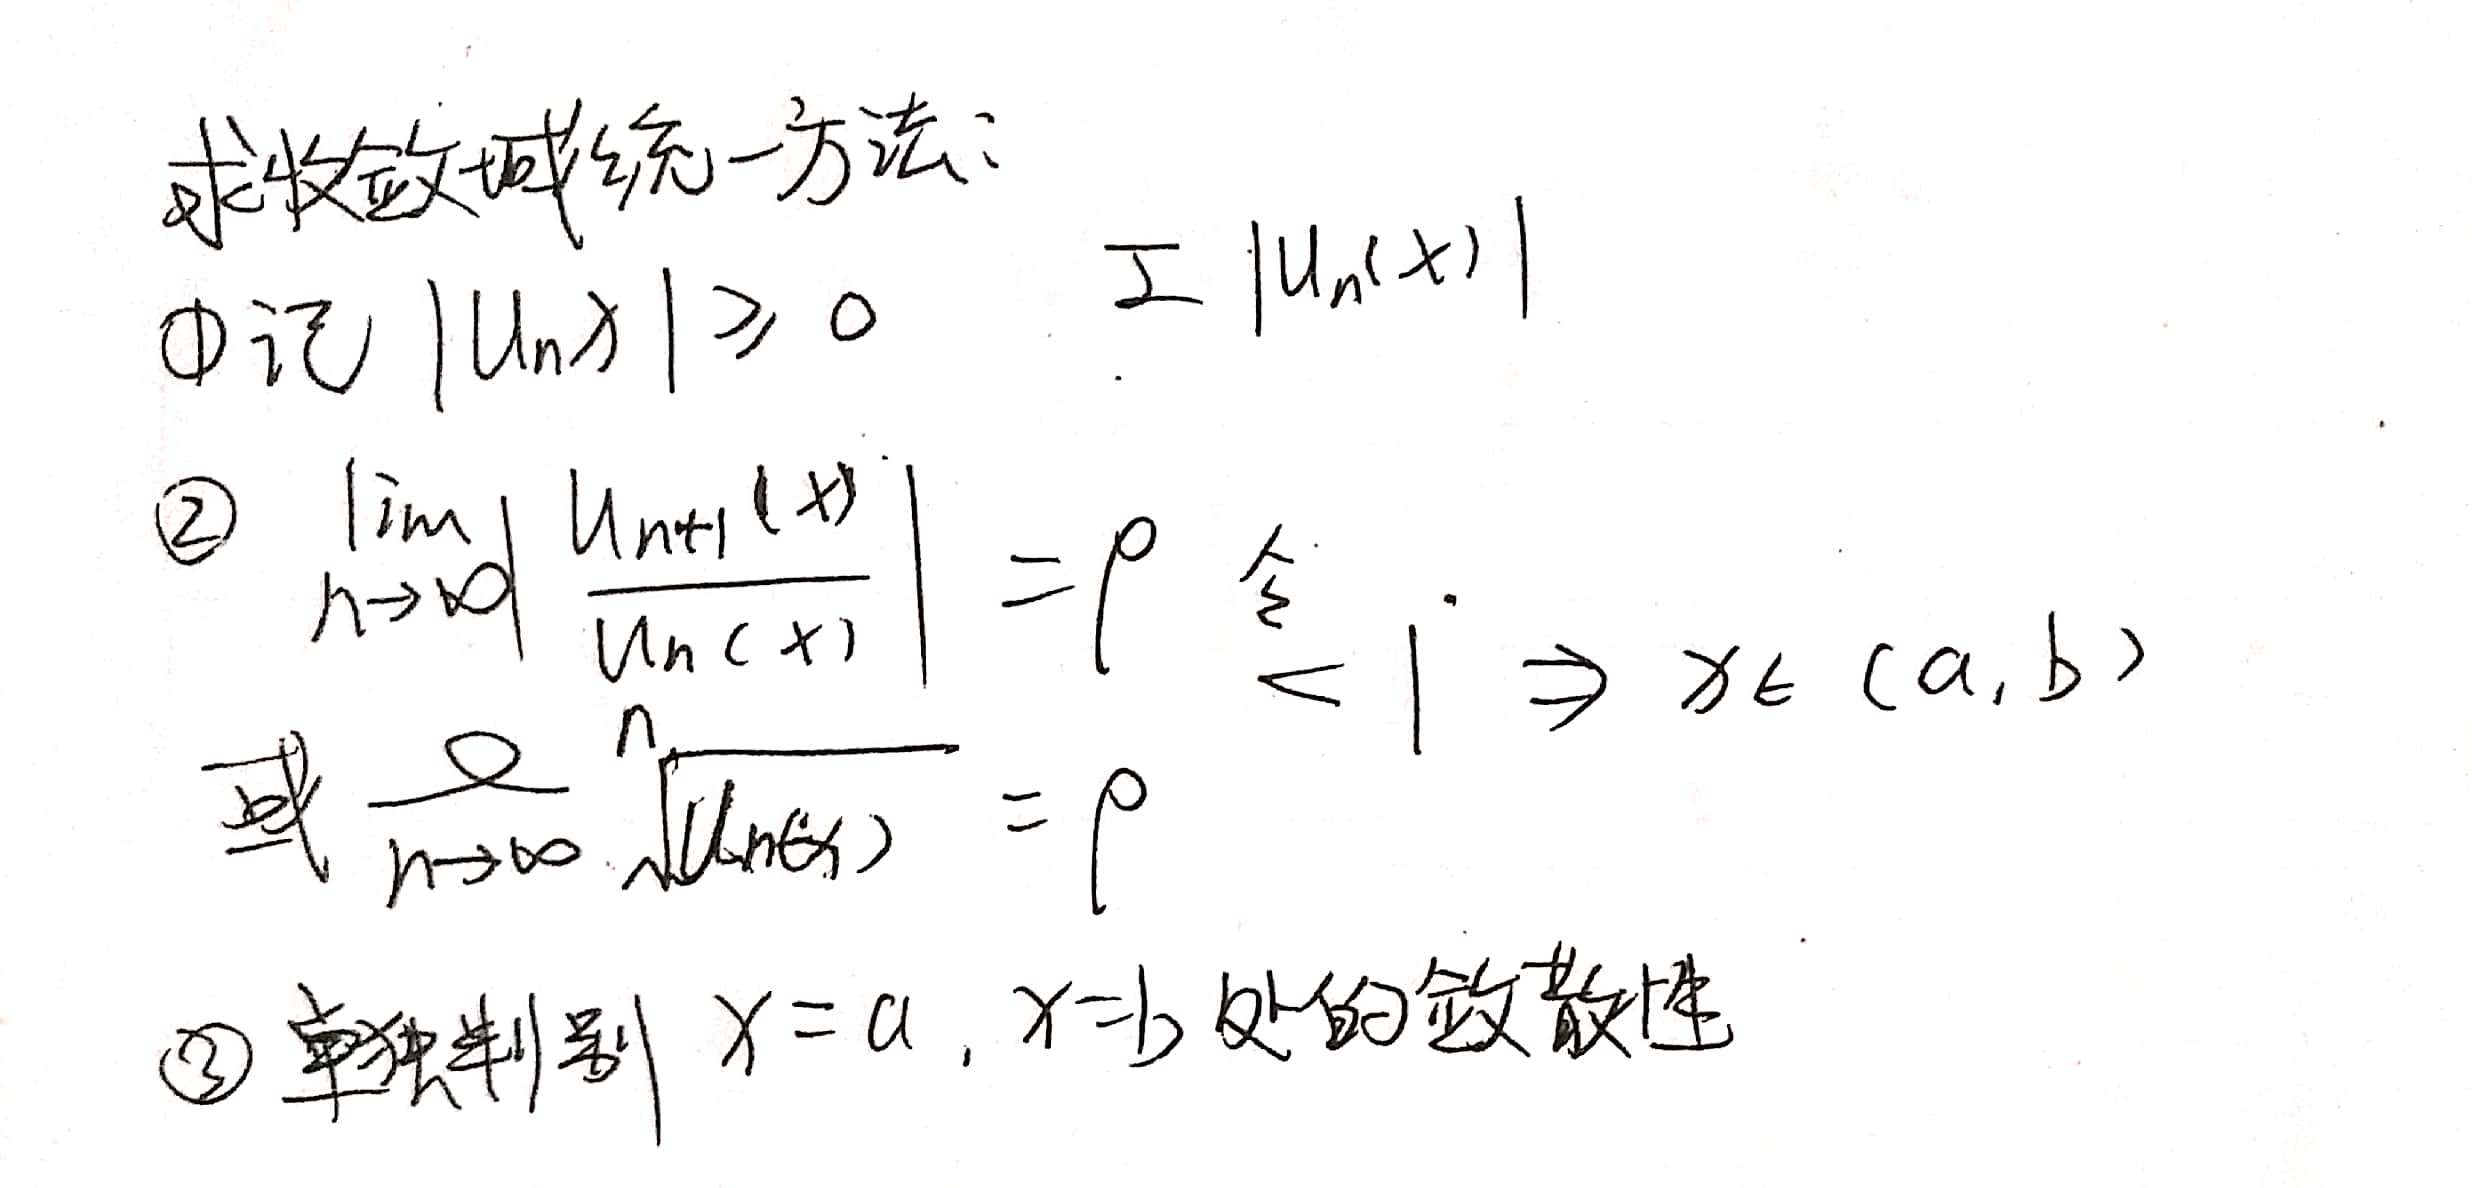 求收敛域统一方法:
① 记 |Unx| ≥ 0
Σ |Un(x)|
② lim n→∞ | Un+1(x) / Un(x) | = ρ 令 < 1 ⇒ x∈(a,b)
或 n→∞ ⁿ√Un(x) = ρ
③ 单独判别 x=a, x=b 处的敛散性